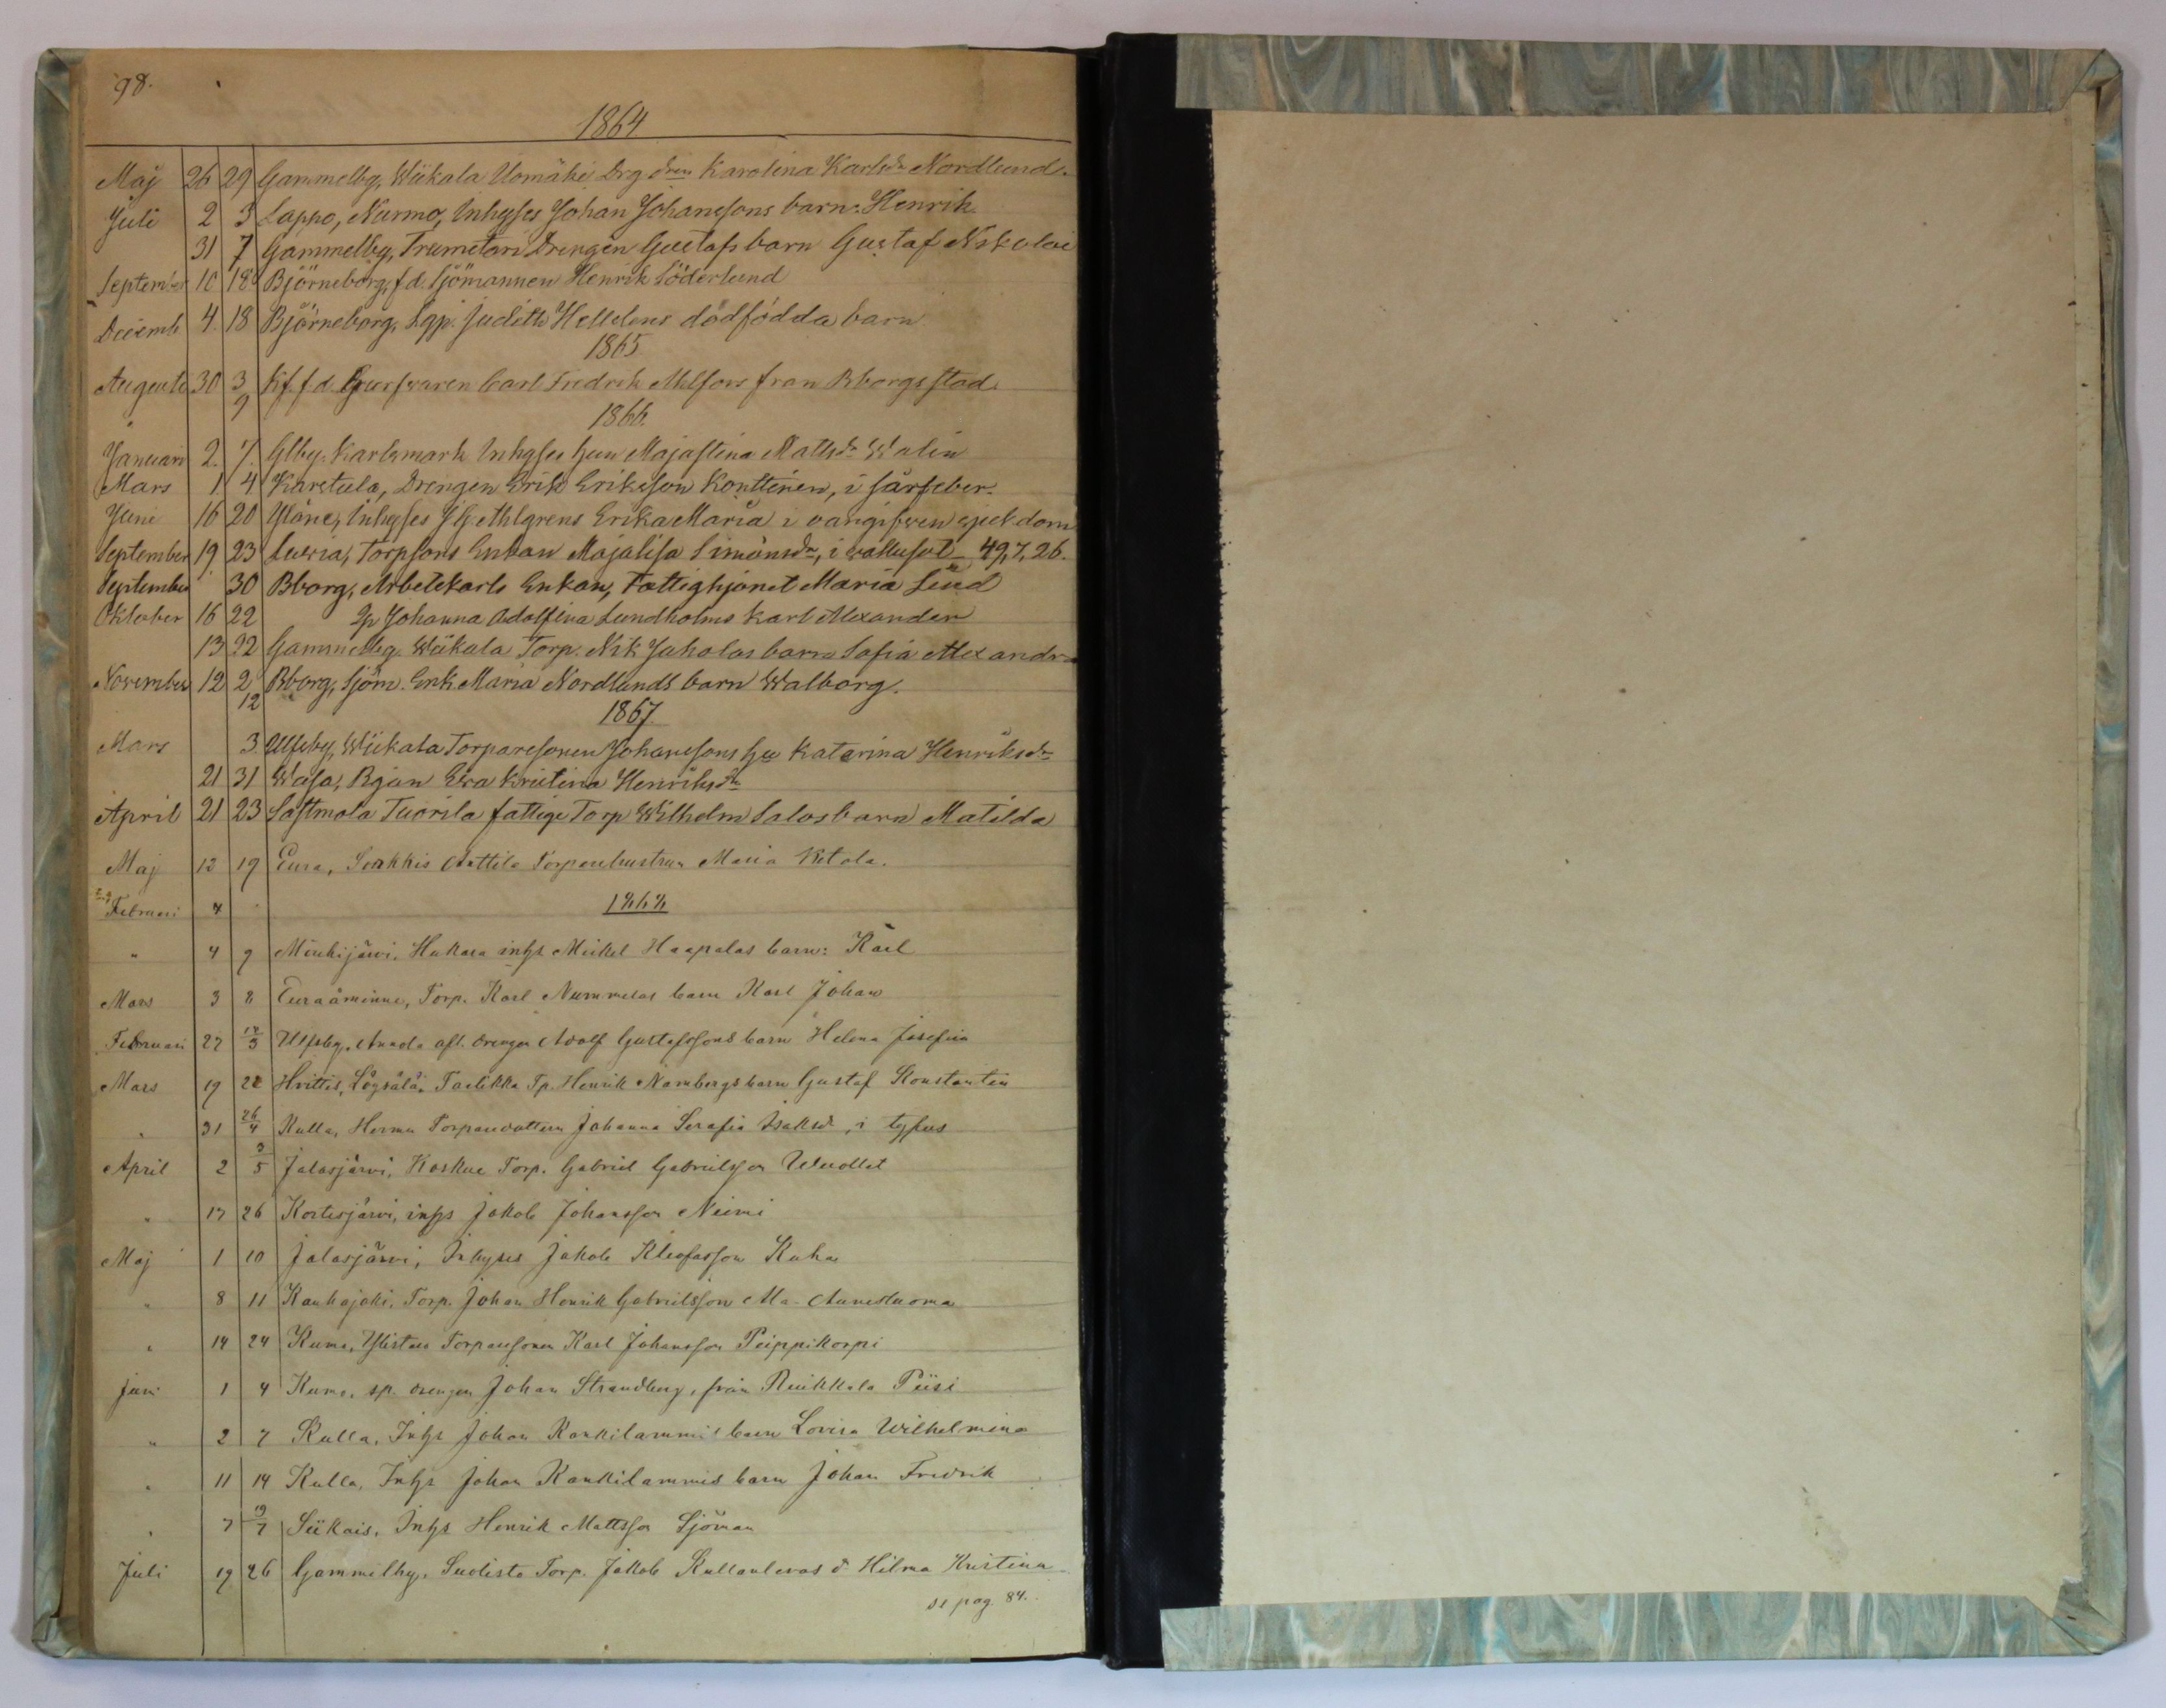 98.
1864
Maj 26 29 Gammelby, Wiikala Uomäki Drg dren Karolina Karlsdr Nordlund.
Juli 2 3 Lappo, Nurmo, Inhyses Johan Johanssons barn: Henrik.
31 7 Gammelby, Trumetari Drengen Gustafs barn Gustaf Nikolai
September 10 18 Björneborg, f.d. Sjömannen Henrik Söderlund
Decemb 4 18 Björneborg, Qp. Judith Hellelens dödfödda barn
1865
Augusti 30 3/9 Kf. f.d. Carl Fredrik Ahlfors fran Bborgs stad.
1866.
Januari 2. 7. Glby. Karlsmark Inhyses hun Majastina Mattsdr Walin
Mars 1 4 Karstula, Drengen Erik Eriksson Konttinen, i fårfeber.
Juni 16 20 Yläne, Inhyses J G. Ahlgrens Erika Maria i sjukdom
September 19 23 Luvia, Torpsons Enkan Majalisa Simonsdr, i vattusot 49, 7, 26.
September 30 Bborg, Arbetskarls Enkan, Fattighjonet Maria Lind
Oktober 16 22 Qp Johanna Adolfina Lundholms Karl Alexander
13 22 Gammelbg. Wiikala Torp. Nik Jaholas barn Sofia Alexandra
November 12 2/12 Bborg, Sjöm. Enk Maria Nordlunds barn Walborg.
1867.
Mars 3 Ulfsby, Wiikala Torparesonen Johanssons hu Katarina Henriksdr
21 31 Wasa, Pigan Eva Kristina Henriksdr
April 21 23 Sastmola Tuorila fattige Torp Wilhelm Salos barn Matilda
Maj 13 19 Eura, Sorkkis Anttila Torparehustrun Maria Ketola.
Februari 4 1868
" 4 9 Mouhijärvi, Hukara inhs Mickel Haapalas barn: Karl
Mars 3 8 Euraåminne, Torp. Karl Nummelas barn Karl Johan
Februari 27 17/3 Ulfsby, Sunda afl. drengen Adolf Gustafssons barn Helena Josefina
Mars 19 22 Hvittis, Löysälä, Taelikka Tp. Henrik Nambergs barn Gustaf Konstantin
" 31 26/4 Kulla, Hormu Torparedottern Johanna Serafia Isaksdr, i tyfus
April 2 3/5 Jalasjärvi, Koskue Torp. Gabriel Gabrielsson
" 17 26 Kortesjärvi, inhs Jakob Johansson Niemi
Maj 1 10 Jalasjärvi, Inhyses Jakob Kleofasson Kuha
" 8 11 Kauhajoki, Torp. Johan Henrik Gabrielsson Ala-Aunesluoma
" 14 24 Kumo, Ylistaro Torparsonen Karl Johansson Peippikorpi
Juni 1 4 Kumo, sp. drengen Johan Strandberg, från Ruikkala Piisi
" 2 7 Kulla, Inhs Johan Kankilammis barn Lovisa Wilhelmina
" 11 14 Kulla, Inhs Johan Kankilammis barn Johan Fredrik
" 7 19/7 Siikais, Inhs Henrik Mattsson Sjöman
Juli 19 26 Gammelby, Suolisto Torp. Jakob Kullanlevas d. Hilma Kristina
se pag. 84.